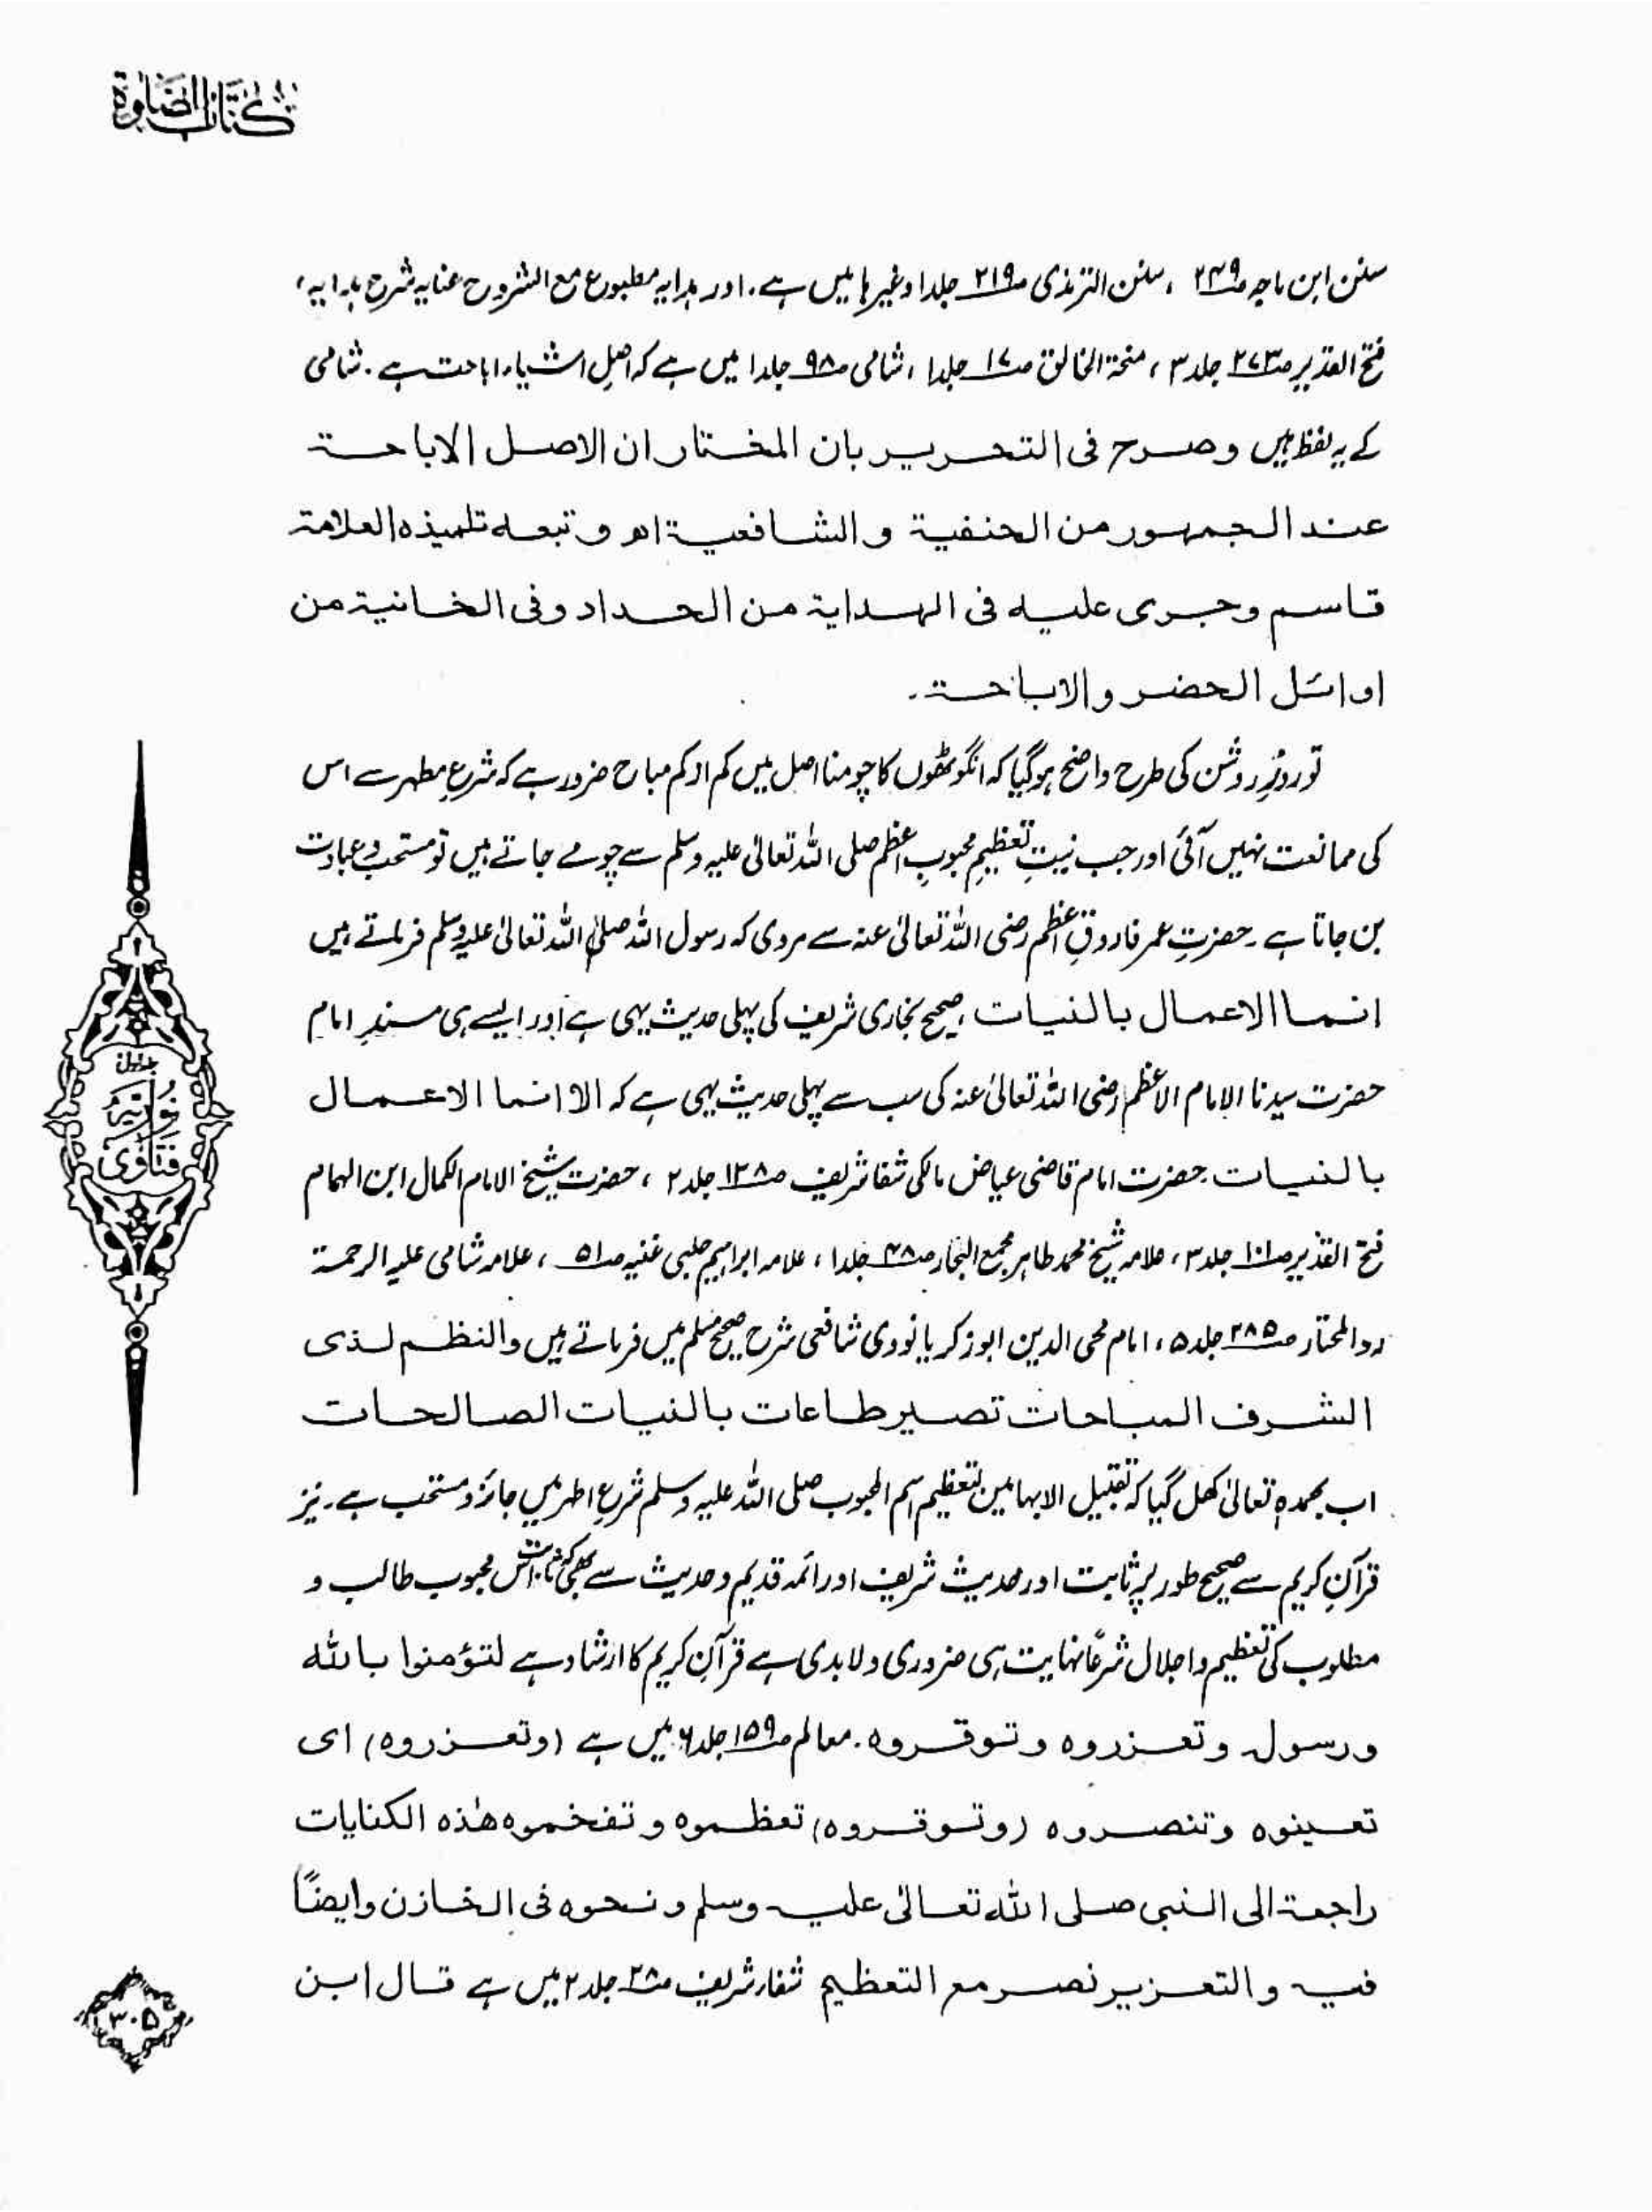 کتاب الصلوة
سنن ابن ماجہ ص۲۴۹ ، سنن الترمذی ص۲۱۹ جلد۱ وغیرہا میں ہے۔ اور ہدایہ مطبوع مع الشروح عنایہ شرح ہدایہ ،
فتح القدیر ص۲۷۳ جلد ۳ ، منحۃ الخالق ص۱۷ جلد۱ ، شامی ص۹۸ جلد۱ میں ہے کہ اصلِ اشیاء اباحت ہے ۔ شامی
کے یہ لفظ ہیں وصرح فی التحریر بان المختار ان الاصل الاباحۃ
عند الجمہور من الحنفیۃ والشافعیۃ اھ و تبعہ تلمیذہ العلامۃ
قاسم وجری علیہ فی الہدایۃ من الحداد وفی الخانیۃ من
اوائل الحضر والاباحۃ۔
تو روزِ روشن کی طرح واضح ہوگیا کہ انگوٹھوں کا چومنا اصل میں کم از کم مباح ضرور ہے کہ شرعِ مطہر سے اس
کی ممانعت نہیں آئی اور جب نیتِ تعظیمِ محبوبِ اعظم صلی اللہ تعالیٰ علیہ وسلم سے چومے جاتے ہیں تو مستحب و عبادت
بن جاتا ہے ۔ حضرتِ عمر فاروقِ اعظم رضی اللہ تعالیٰ عنہ سے مروی کہ رسول اللہ صلی اللہ تعالیٰ علیہ وسلم فرماتے ہیں
انما الاعمال بالنیات ، صحیح بخاری شریف کی پہلی حدیث یہی ہے اور ایسے ہی مسندِ امام
حضرت سیدنا الامام الاعظم رضی اللہ تعالیٰ عنہ کی سب سے پہلی حدیث یہی ہے کہ الا انما الاعمال
بالنیات ۔ حضرت امام قاضی عیاض مالکی شفا شریف ص۱۳۸ جلد ۲ ، حضرت شیخ الامام الکمال ابن الہمام
فتح القدیر ص۱۰۱ جلد ۳ ، علامہ شیخ محمد طاہر مجمع البحار ص۴۸ جلد۱ ، علامہ ابراہیم حلبی غنیہ ص۵۱ ، علامہ شامی علیہ الرحمۃ
ردالمحتار ص۲۸۵ جلد ۵ ، امام محی الدین ابوزکریا نووی شافعی شرح صحیح مسلم میں فرماتے ہیں والنظم لذی
الشرف المباحات تصیر طاعات بالنیات الصالحات
اب بحمدہٖ تعالیٰ کھل گیا کہ تقبیل الابہامین لتعظیم اسم المحبوب صلی اللہ علیہ وسلم شرعِ اطہر میں جائز و مستحب ہے۔ نیز
قرآنِ کریم سے صحیح طور پر ثابت اور حدیث شریف اور ائمہ قدیم و حدیث سے بھی ثابت کہ اس محبوب طالب و
مطلوب کی تعظیم و اجلال شرعًا نہایت ہی ضروری و لابدی ہے قرآنِ کریم کا ارشاد ہے لتؤمنوا باللہ
ورسولہ وتعزروہ وتوقروہ ۔ معالم ص۱۵۹ جلد ۶ میں ہے (وتعزروہ) ای
تعینوہ وتنصروہ (وتوقروہ) تعظموہ وتفخموہ ھٰذہ الکنایات
راجعۃ الی النبی صلی اللہ تعالیٰ علیہ وسلم ونحوہ فی الخازن وایضًا
فیہ والتعزیر نصر مع التعظیم شفاء شریف ص۲۸ جلد ۲ میں ہے قال ابن
جلد اول
نوریہ
فتاویٰ
۳۰۵